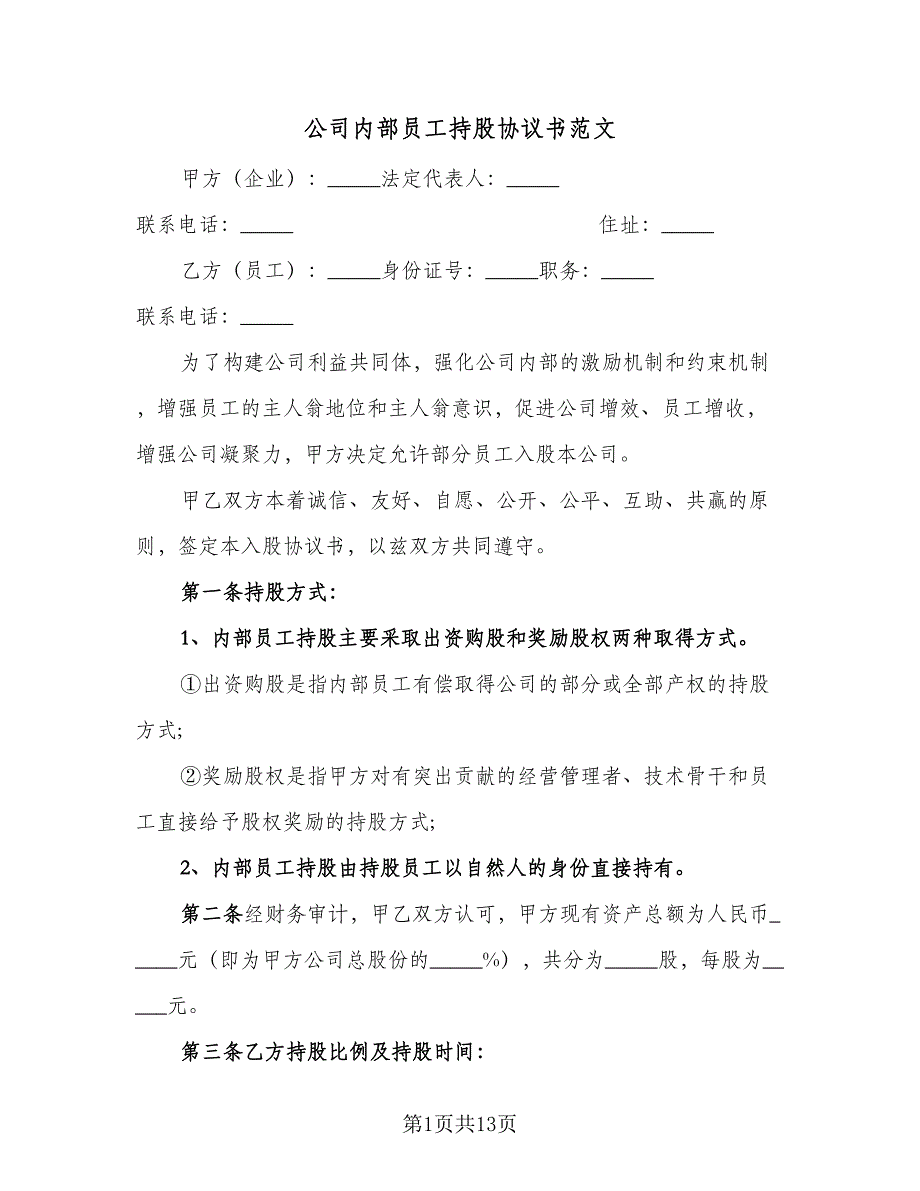 公司内部员工持股协议书范文
甲方（企业）：_____法定代表人：_____
联系电话：_____ 住址：_____
乙方（员工）：_____身份证号：_____职务：_____
联系电话：_____
为了构建公司利益共同体，强化公司内部的激励机制和约束机制
，增强员工的主人翁地位和主人翁意识，促进公司增效、员工增收，
增强公司凝聚力，甲方决定允许部分员工入股本公司。
甲乙双方本着诚信、友好、自愿、公开、公平、互助、共赢的原
则，签定本入股协议书，以兹双方共同遵守。
第一条持股方式：
1、内部员工持股主要采取出资购股和奖励股权两种取得方式。
①出资购股是指内部员工有偿取得公司的部分或全部产权的持股
方式;
②奖励股权是指甲方对有突出贡献的经营管理者、技术骨干和员
工直接给予股权奖励的持股方式;
2、内部员工持股由持股员工以自然人的身份直接持有。
第二条经财务审计，甲乙双方认可，甲方现有资产总额为人民币_
____元（即为甲方公司总股份的_____%），共分为_____股，每股为__
___元。
第三条乙方持股比例及持股时间：
第1页共13页